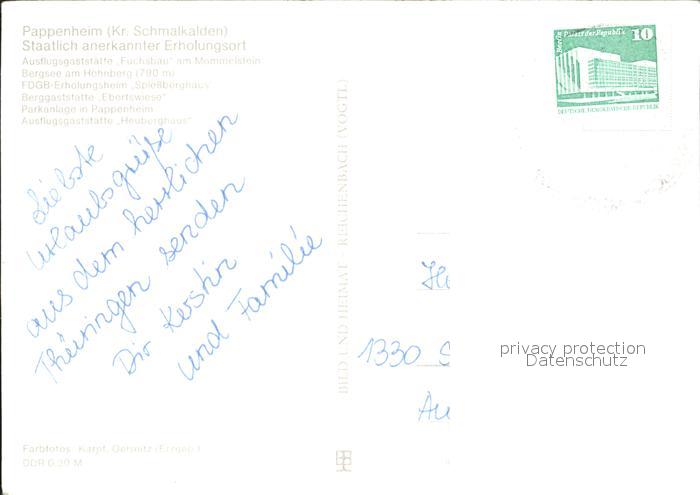 Pappenheim (Kr. Schmalkalden)
Staatlich anerkannter Erholungsort
Ausflugsgaststätte „Fuchsbau" am Mommelstein
Bergsee am Höhnberg (790 m)
FDGB-Erholungsheim „Spießberghaus"
Berggaststätte „Ebertswiese"
Parkanlage in Pappenheim
Ausflugsgaststätte „Heuberghaus"
Liebste
Urlaubsgrüße
aus dem herrlichen
Thüringen senden
Dir Kerstin
und Familie
Farbfotos: Karpf, Oelsnitz (Erzgeb.)
DDR 0,20 M
BILD UND HEIMAT · REICHENBACH (VOGTL.)
Berlin Palast der Republik 10
DEUTSCHE DEMOKRATISCHE REPUBLIK
1330
privacy protection
Datenschutz